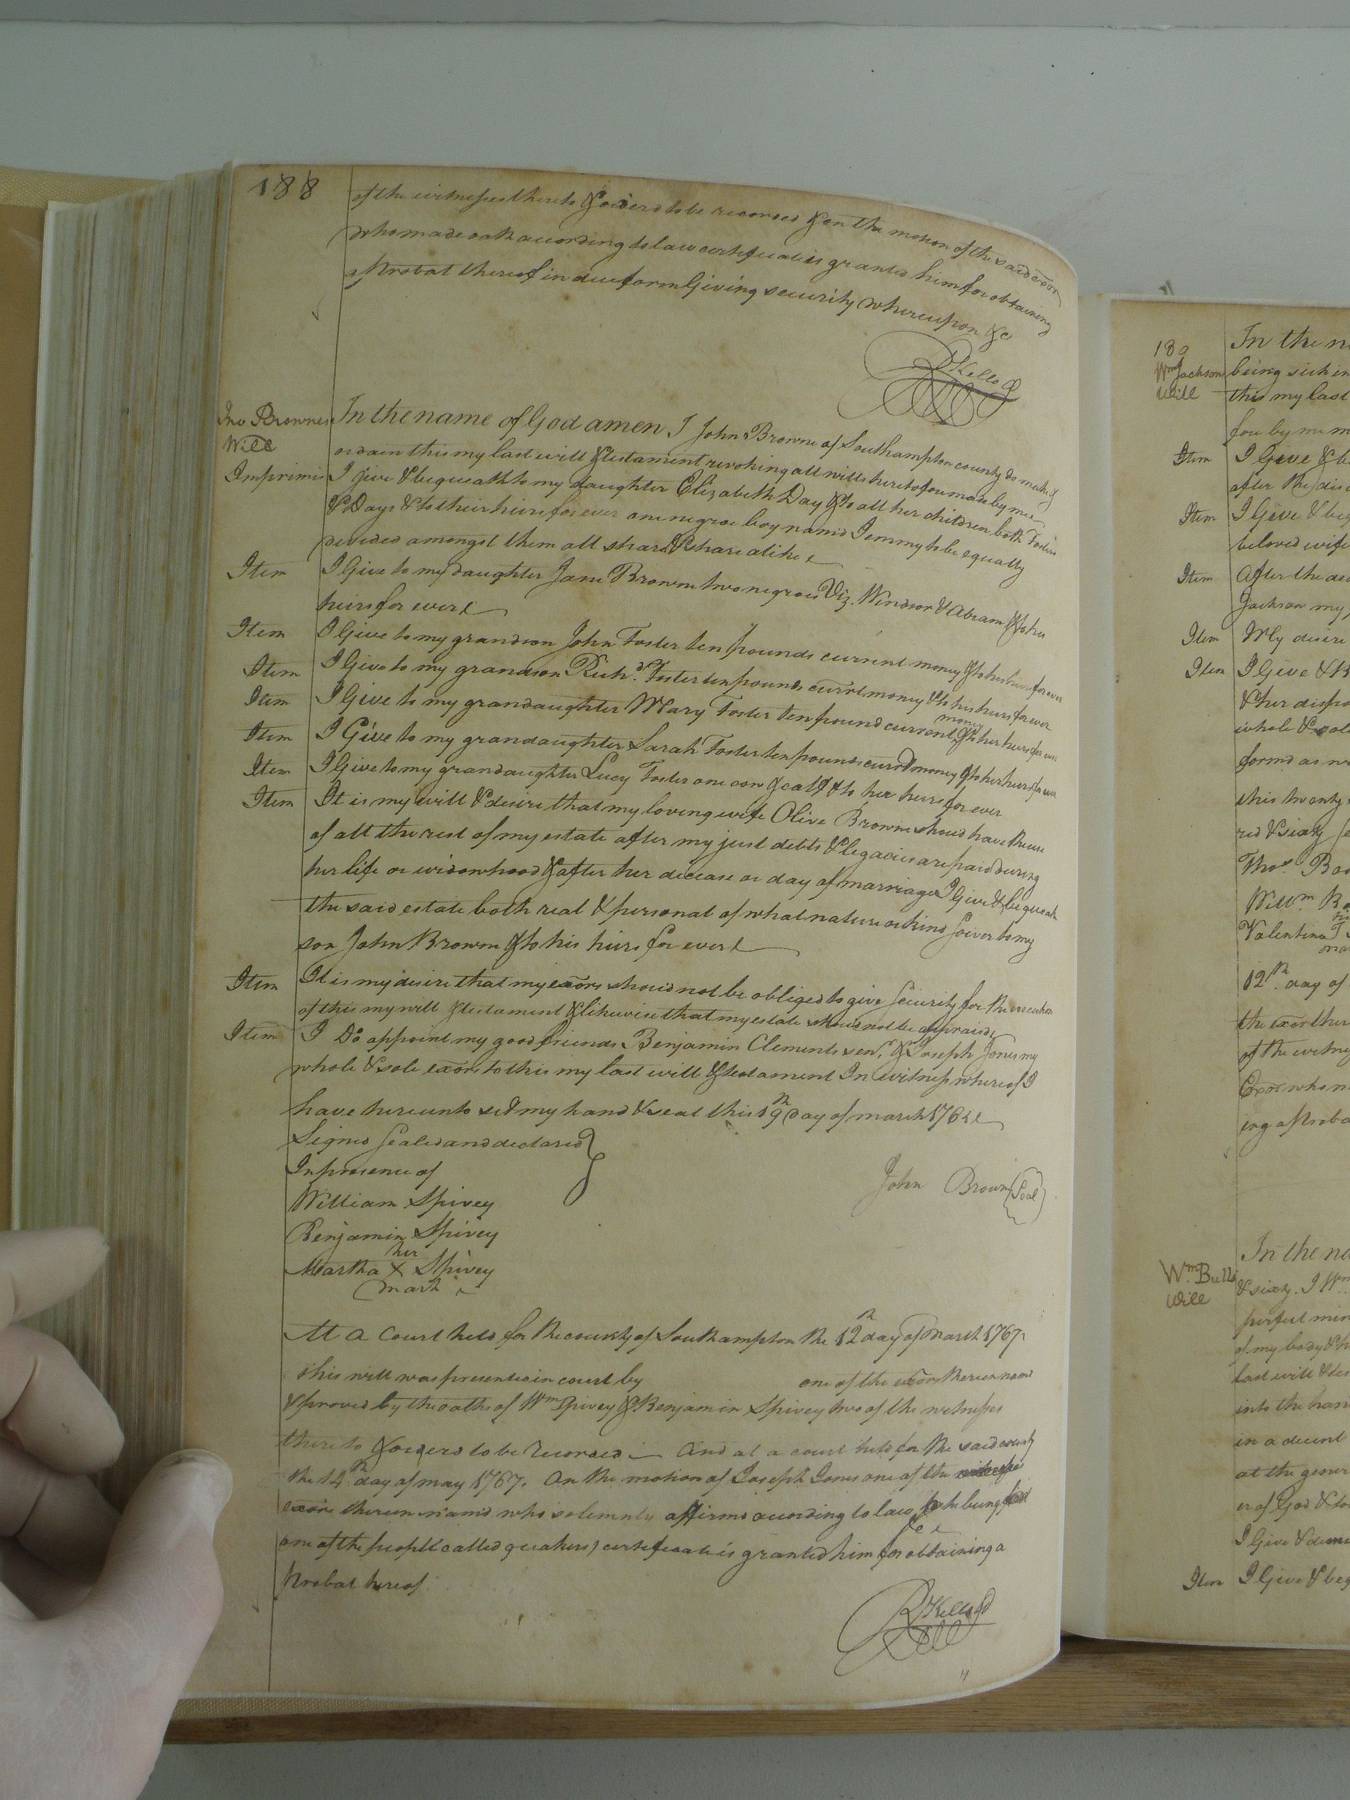 188
of the witnesses thereto & orderd to be recorded & on the motion of the said exor
who made oath according to law certificate is granted him for obtaining
a Probat thereof in due form Giving security whereupon &c
R Kello
Jno Brownes
Will
In the name of God amen I John Browne of Southampton county do make &
ordain this my last will & testament revoking all wills heretofore made by me
Imprimis I give & bequeath to my daughter Elizabeth Day & to all her children both Fosters
& Days & to their heirs for ever one negroe boy namd Jemmy to be equally
devided amongst them all share & share alike
Item I Give to my daughter Jane Brown two negroes Viz. Windsor & Abram & to her
heirs for ever
Item I Give to my grandson John Foster ten pounds current money & to his heirs for ever
Item I Give to my grandson Richd. Foster ten pounds currt money & to his heirs for ever
Item I Give to my grandaughter Mary Foster ten pound current money & to her heirs for ever
Item I Give to my grandaughter Sarah Foster ten pounds currt money & to her heirs for ever
Item I Give to my grandaughter Lucy Foster one cow & calf & to her heirs for ever
Item It is my will & desire that my loving wife Olive Browne shoud have the use
of all the rest of my estate after my just debts & legacies are paid during
her life or widowhood & after her decease or day of marriage I Give & bequeath
the said estate both real & personal of what nature or kind soiver to my
son John Brown & to his heirs for ever
Item It is my desire that my exors shoud not be obliged to give security for the execution
of this my will & testament & likewise that my estate shoud not be appraised
Item I Do appoint my good friends Benjamin Clements senr. & Joseph Jones my
whole & sole exors to this my last will & testament In witness whereof I
have hereunto set my hand & seal this 19th day of march
Signed Sealed and declared
In presence of
John Brown (Seal)
William Spivey
Benjamin Spivey
her
Martha X Spivey
mark
At a Court held for the county of Southampton the 12th day of march 1767
This will was presented in court by one of the exors therein named
& proved by the oaths of Wm Spivey & Benjamin Spivey two of the witnesses
thereto & orderd to be recorded And at a court held for the said county
the 14th day of may 1767. On the motion of Joseph Jones one of the
exors therein namd who solemnly affirmd according to law he being
one of the people called quakers) certificate is granted him for obtaining a
Probat hereof
R Kello
Wm Jackson
Will
In the
being sick
this my last
Item I Give &
after the
Item I Give &
beloved wife
Item After the
Jackson my
Item My desire
Item I Give &
& her
whole &
this twenty
red & sixty
Thos.
Willm
Valentine
12th. day of
the exor
of the
Exor who
ing a Probat
Wm Bulls
Will
In the
& sixty. I Wm
perfect
of my body &
last will &
into the
in a decent
at the
er of God &
I Give &
Item I Give &